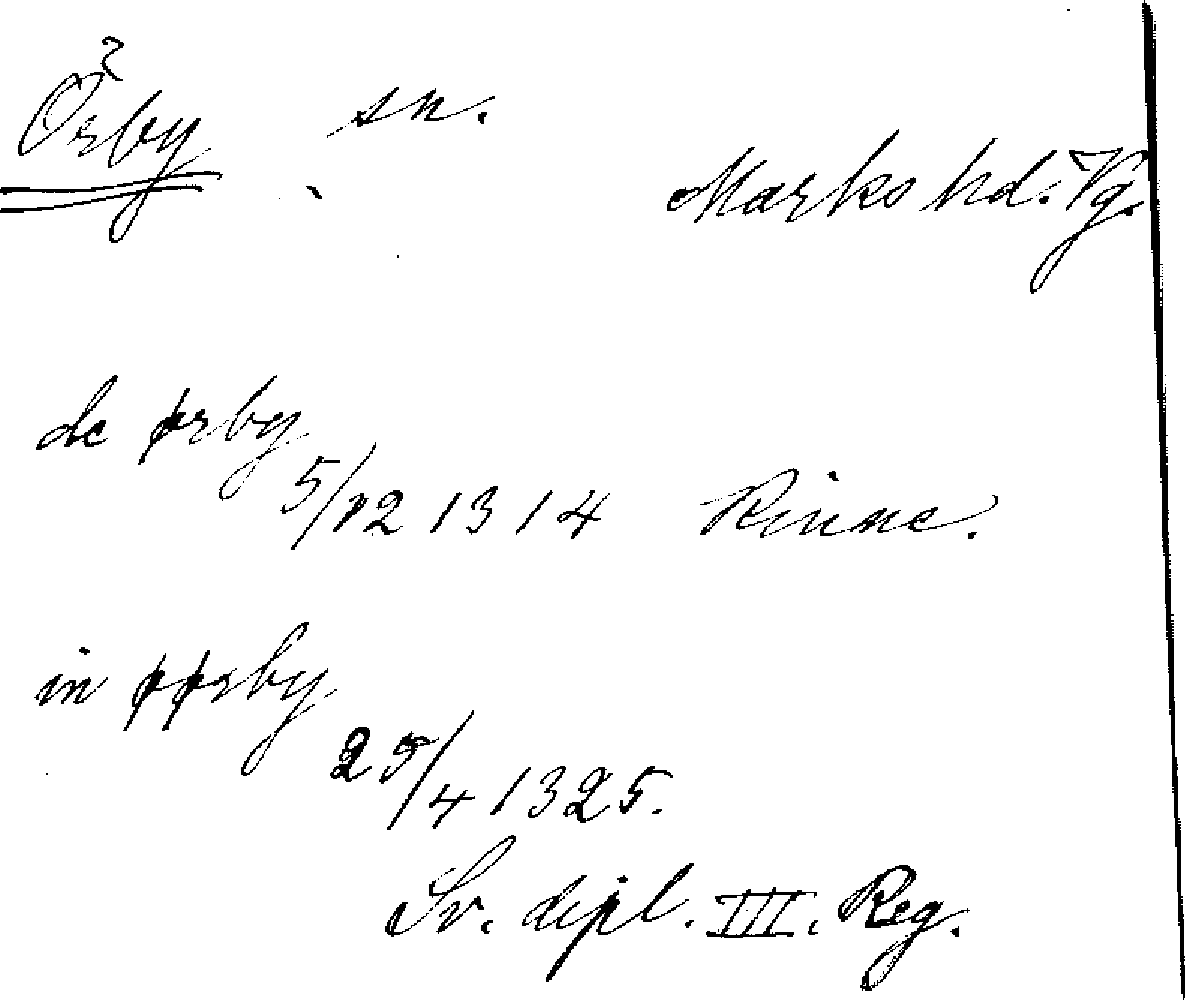 Örby sn.
Marks hd. Vg.
de ørby
5/12 1314 Rinne.
in øørby
25/4 1325.
Sv. dipl. III. Reg.